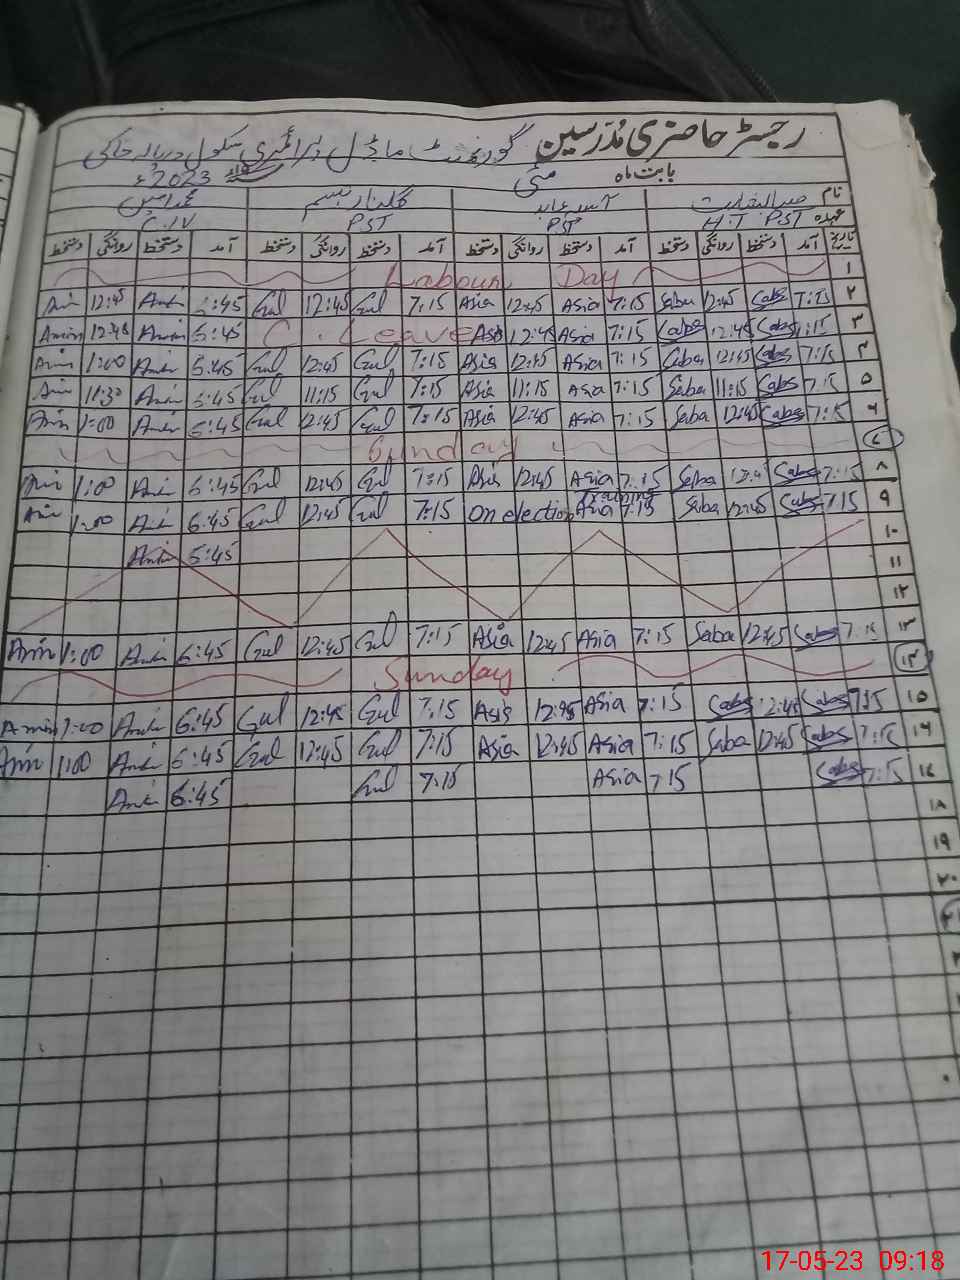 رجسٹر حاضری مُدرسین گورنمنٹ ماڈل پرائمری سکول
بابت ماہ مئی 2023ء
نام گلناز بسم محمد امین
عہدہ H.T PST PST PST C.IV
تاریخ آمد دستخط روانگی دستخط آمد دستخط روانگی دستخط آمد دستخط روانگی دستخط آمد دستخط روانگی دستخط
۱ Labour Day
۲ 7:15 Saba 12:45 Saba 7:15 Asia 12:45 Asia 7:15 Gul 12:45 Gul 6:45 Amin 12:45 Amin
۳ 7:15 Saba 12:45 Saba 7:15 Asia 12:45 Asia C. Leave 6:45 Amin 12:45 Amin
۴ 7:15 Saba 12:45 Saba 7:15 Asia 12:45 Asia 7:15 Gul 12:45 Gul 6:45 Amin 1:00 Amin
۵ 7:15 Saba 11:15 Saba 7:15 Asia 11:15 Asia 7:15 Gul 11:15 Gul 6:45 Amin 11:30 Amin
۶ 7:15 Saba 12:45 Saba 7:15 Asia 12:45 Asia 7:15 Gul 12:45 Gul 6:45 Amin 1:00 Amin
۷ Sunday
۸ 7:15 Saba 12:45 Saba 7:15 Asia 12:45 Asia 7:15 Gul 12:45 Gul 6:45 Amin 1:00 Amin
۹ 7:15 Saba 12:45 Saba 7:15 Asia On election Training 7:15 Gul 12:45 Gul 6:45 Amin 1:00 Amin
۱۰ 5:45 Amin
۱۱
۱۲
۱۳ 7:15 Saba 12:45 Saba 7:15 Asia 12:45 Asia 7:15 Gul 12:45 Gul 6:45 Amin 1:00 Amin
۱۴ Sunday
۱۵ 7:15 Saba 12:45 Saba 7:15 Asia 12:45 Asia 7:15 Gul 12:45 Gul 6:45 Amin 1:00 Amin
۱۶ 7:15 Saba 12:45 Saba 7:15 Asia 12:45 Asia 7:15 Gul 12:45 Gul 6:45 Amin 1:00 Amin
۱۷ 7:15 Saba 7:15 Asia 7:15 Gul 6:45 Amin
۱۸
۱۹
۲۰
۲۱
17-05-23 09:18